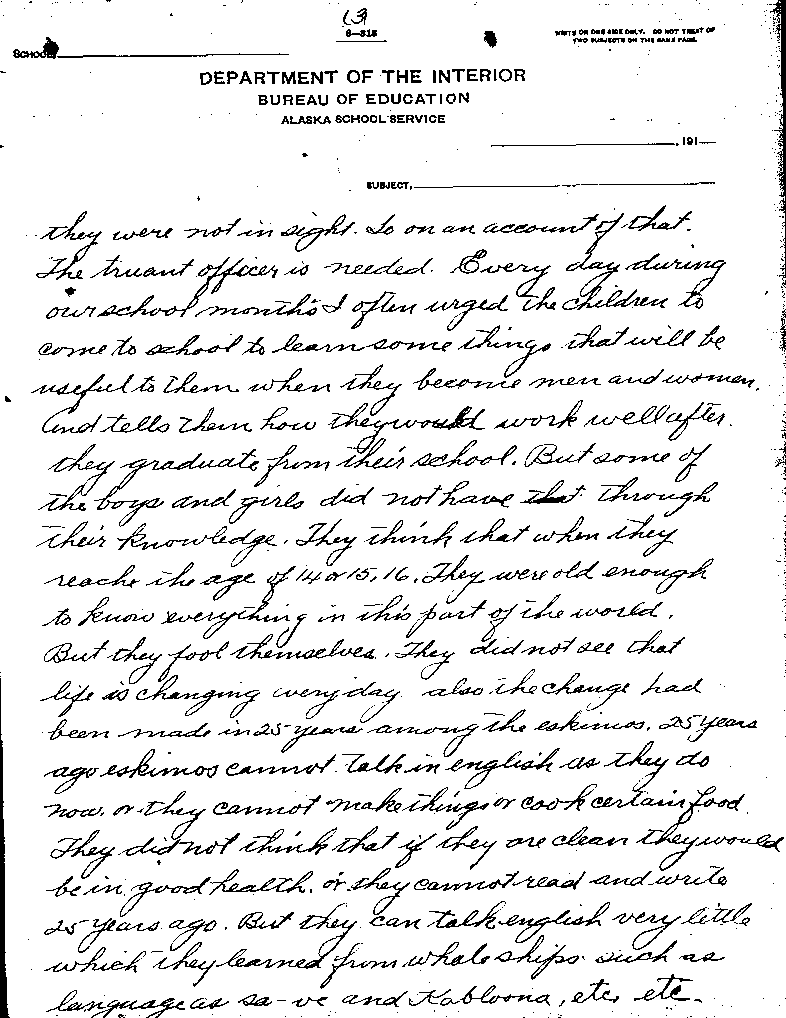 (3)
6—315
WRITE ON ONE SIDE ONLY. DO NOT TREAT OF
TWO SUBJECTS ON THE SAME PAGE.
SCHOOL,
DEPARTMENT OF THE INTERIOR
BUREAU OF EDUCATION
ALASKA SCHOOL SERVICE
, 191
SUBJECT,
they were not in sight. So on an account of that.
The truant officer is needed. Every day during
our school months I often urged the children to
come to school to learn some things that will be
useful to them when they become men and women.
And tells them how they would work well after
they graduate from their school. But some of
the boys and girls did not have that through
their knowledge. They think that when they
reache the age of 14 or 15, 16. They were old enough
to know everything in this part of the world.
But they fool themselves. They did not see that
life is changing every day also the change had
been made in 25 years among the eskimos. 25 years
ago eskimos cannot talk in english as they do
now. or they cannot make things or cook certain food
They did not think that if they are clean they would
be in good health. or they cannot read and write
25 years ago. But they can talk english very little
which they learned from whale ships such as
language as sa-ve and Kabloona, etc, etc.